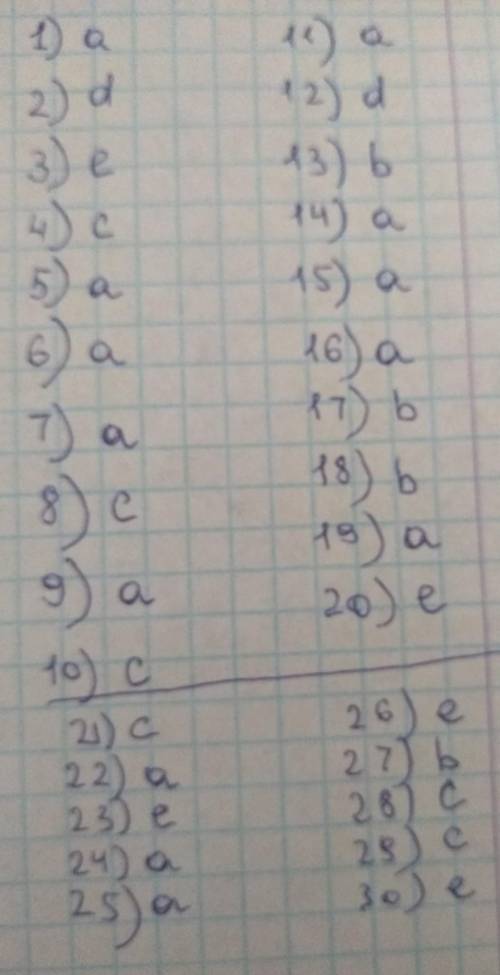 1) a
2) d
3) e
4) c
5) a
6) a
7) a
8) c
9) a
10) c
11) a
12) d
13) b
14) a
15) a
16) a
17) b
18) b
19) a
20) e
21) c
22) a
23) e
24) a
25) a
26) e
27) b
28) c
29) c
30) e